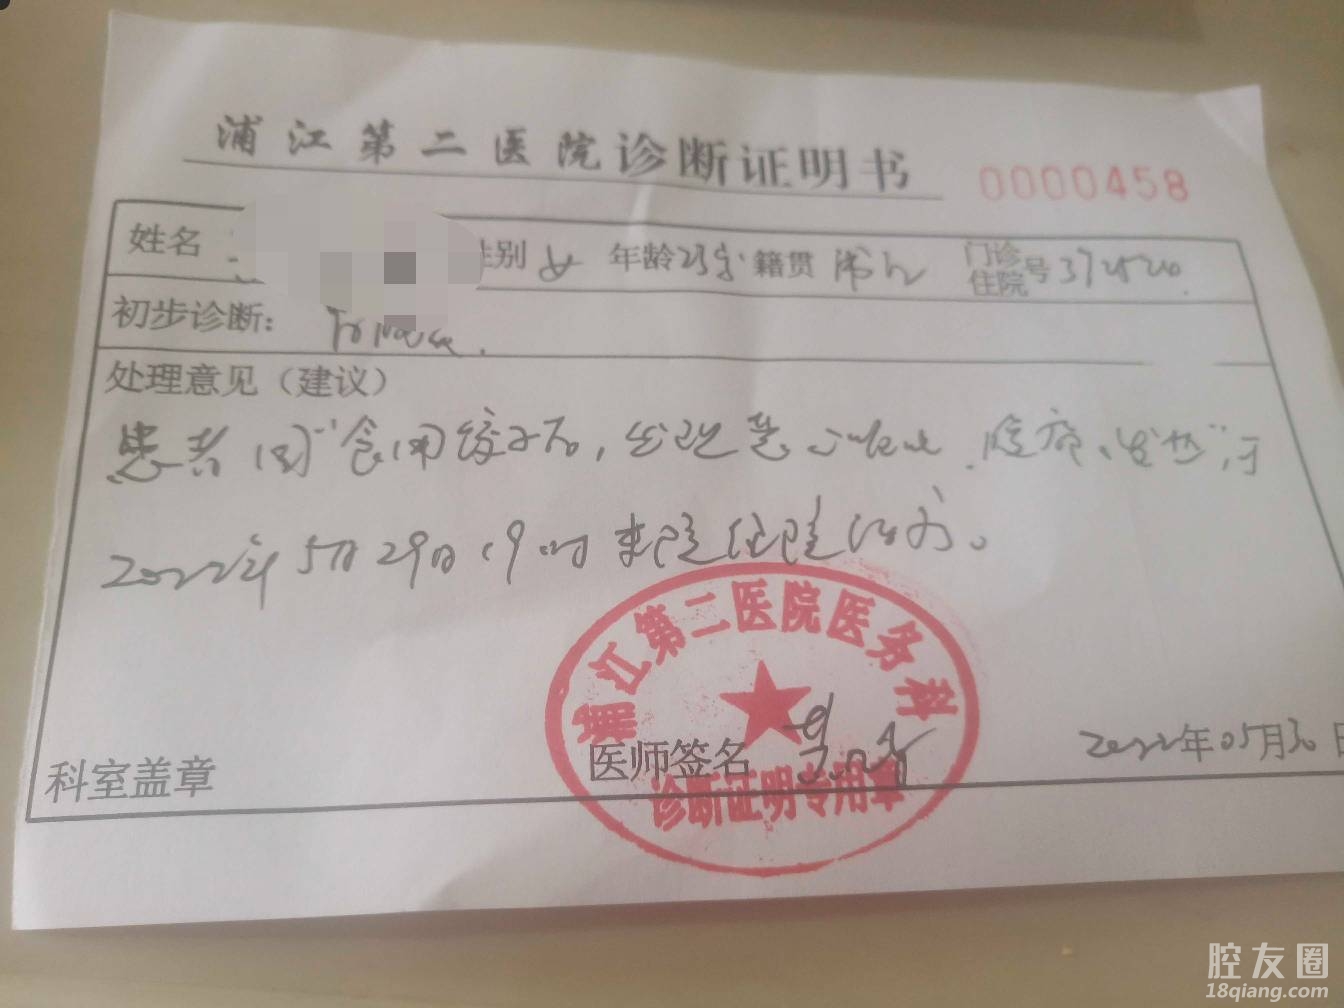 浦江第二医院诊断证明书 0000458
姓名 性别 女 年龄 23岁 籍贯 浦江 门诊住院号
初步诊断：
处理意见（建议）
患者因"食用饺子后，出现恶心呕吐、腹痛、发热"，于
2022年5月29日19时来院住院治疗。
浦江第二医院医务科
诊断证明专用章
科室盖章 医师签名 2022年05月30日
腔友圈
18qiang.com